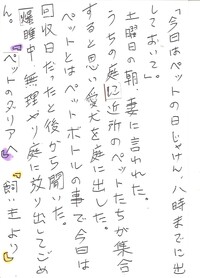 「今日はペットの日じゃけん、八時までに出
しておいて」
土曜日の朝、妻に言われた。
うちの庭に近所のペットたちが集合
すると思い愛犬を庭に出した。
ペットとはペットボトルの事で今日は
回収日だったと後から聞いた。
爆睡中、無理やり庭に放り出してごめ
ん。「ペットのメリアへ 飼い主より」